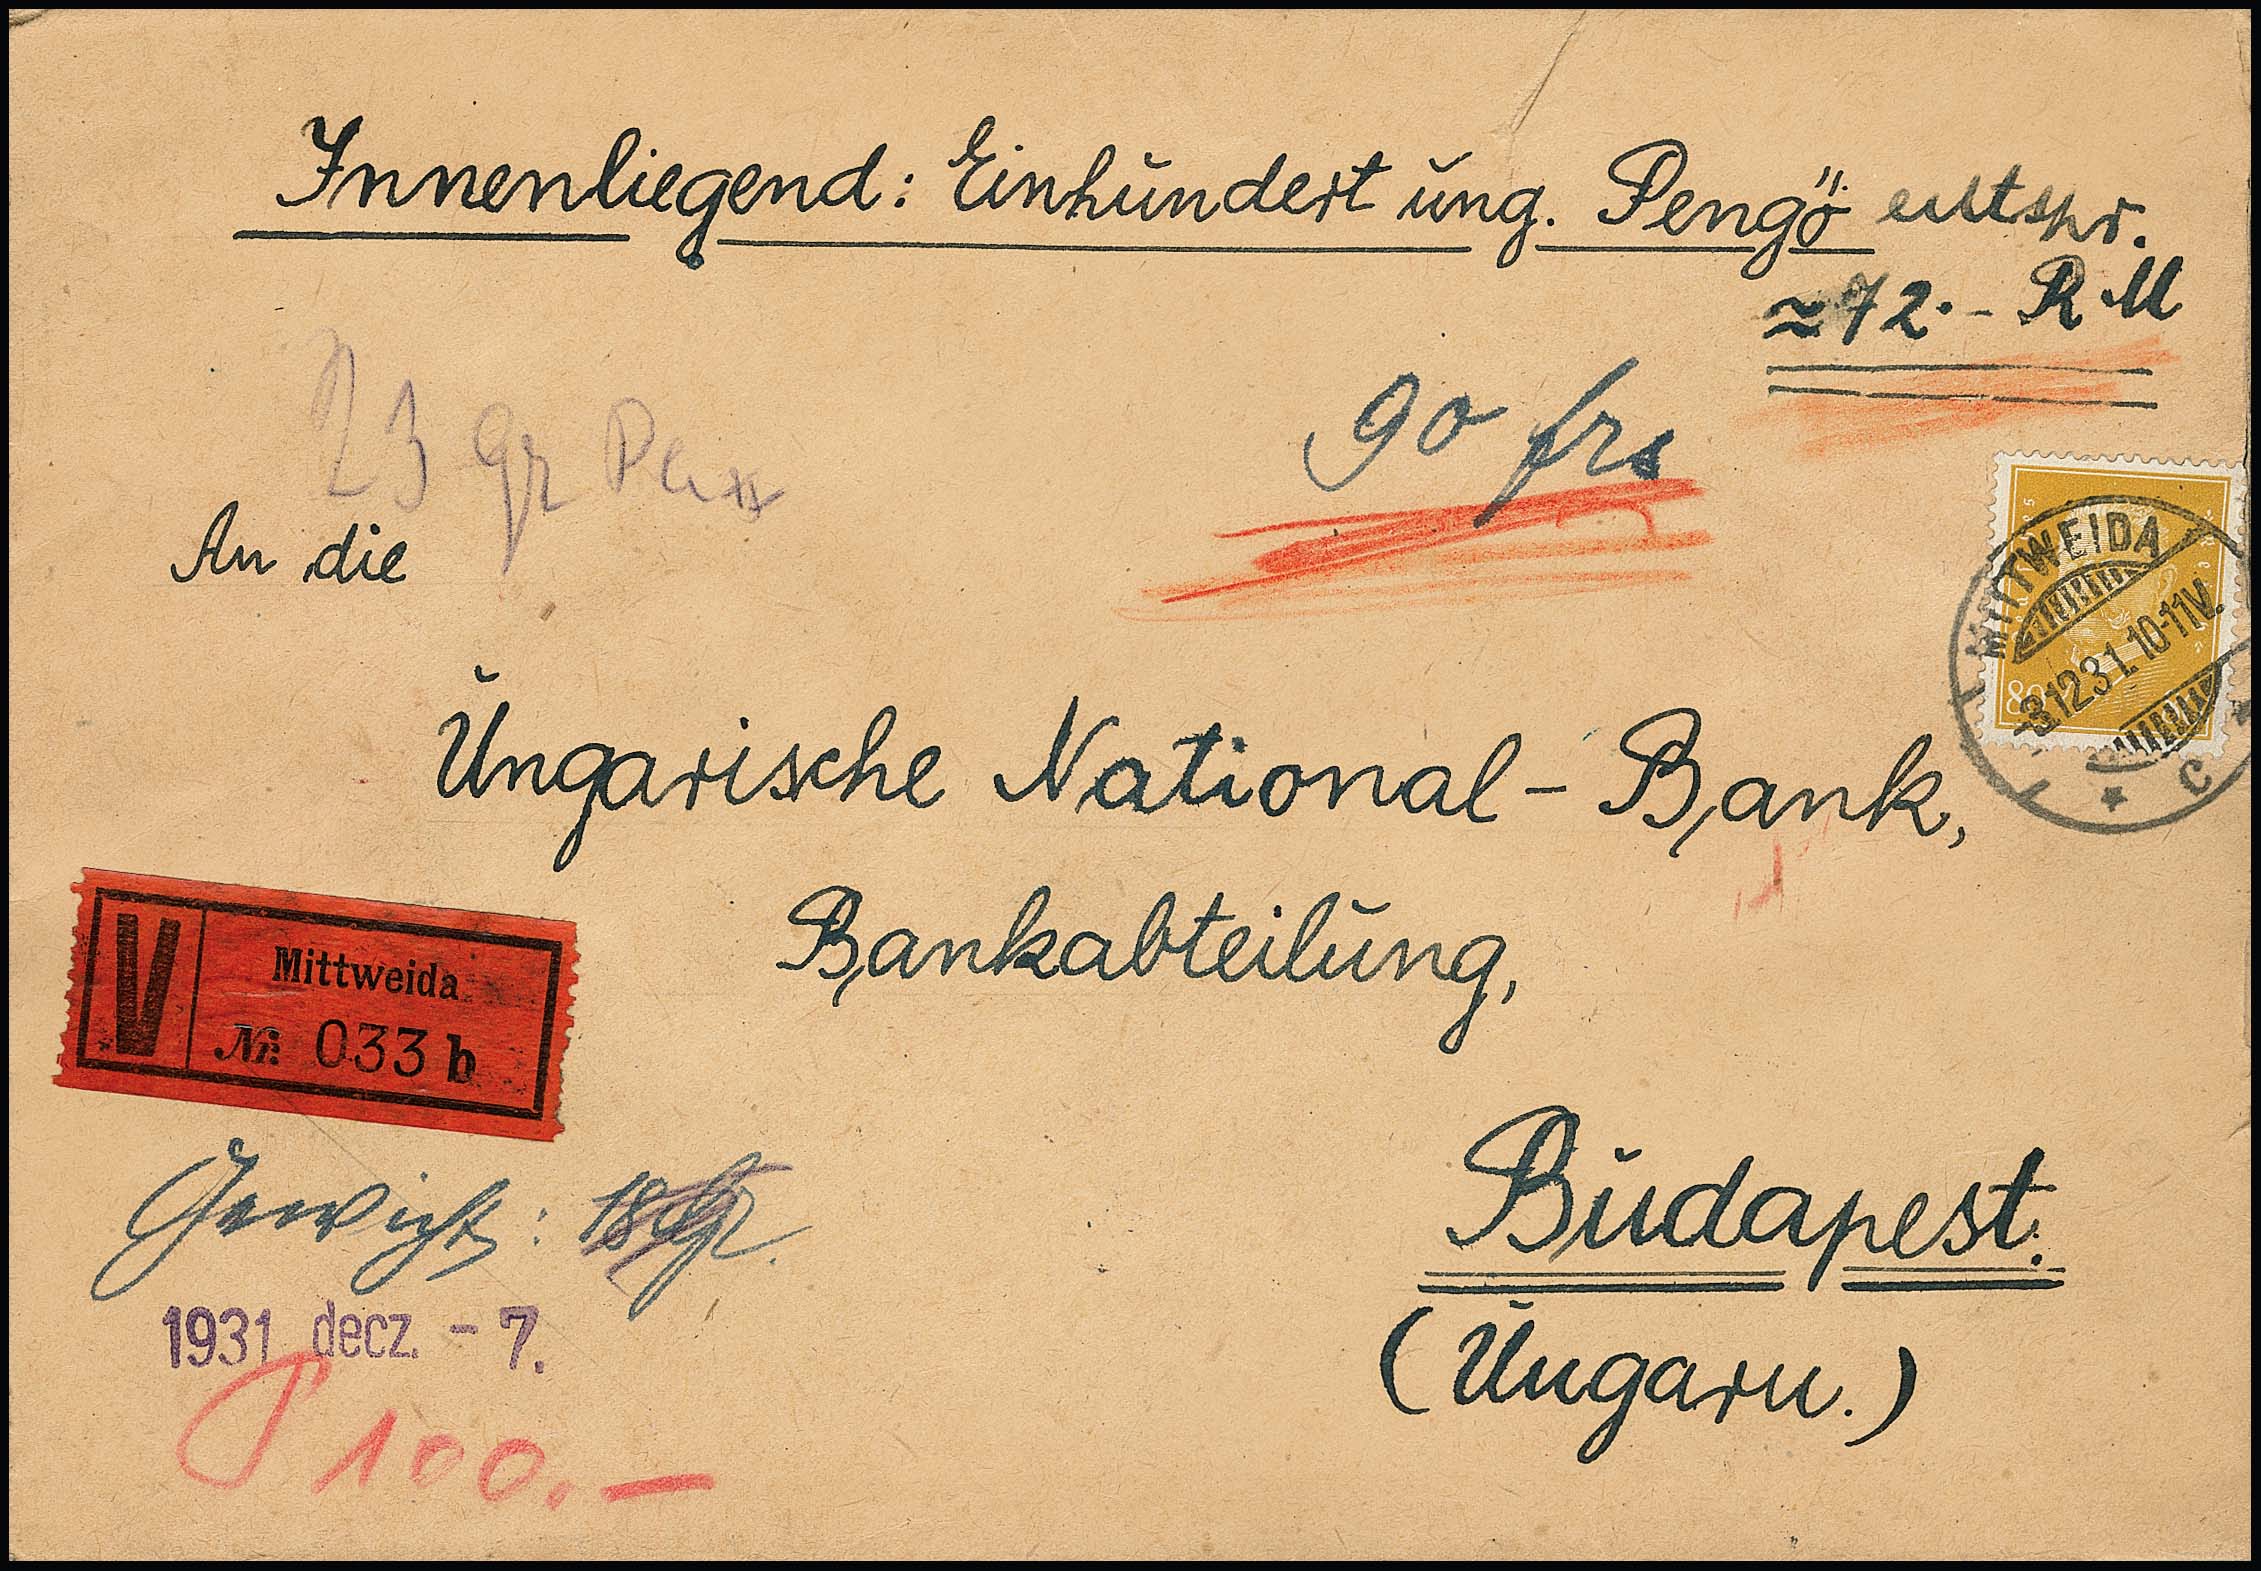 Innenliegend: Einhundert ung. Pengö entspr.
≈ 72.- RM
90 frs
23 gr
An die
Ungarische National-Bank,
Bankabteilung,
Budapest.
(Ungarn.)
MITTWEIDA
-3.12.31.10-11V.
* C *
80
V
Mittweida
Nr. 033 b
Gewicht: 18 Gr.
1931 decz. - 7.
P 100.-